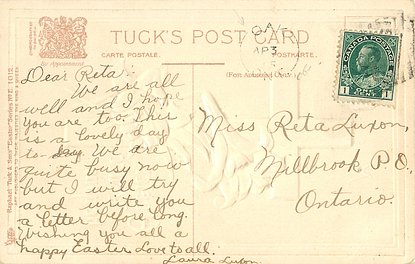 TUCK'S POST CARD
CARTE POSTALE.
POSTKARTE.
By Appointment
(For Address Only)
Raphael Tuck & Sons' "Easter" Series
AP 3
CANADA POSTAGE
1 ONE CENT 1
Dear Reta.
We are all
well and I hope
you are too. This
is a lovely day
to-day We are
quite busy now
but I will try
and write you
a letter before long.
Wishing you all a
happy Easter. Love to all.
Laura Luxon.
Miss Reta Luxon,
Millbrook P.O.
Ontario.